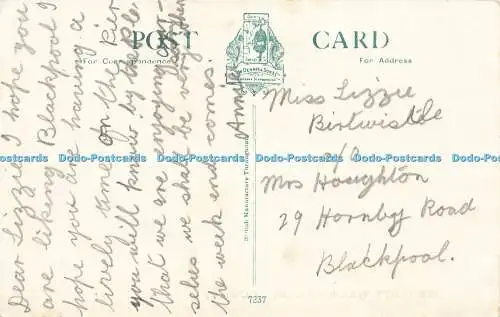 POST CARD
For Correspondence
For Address
British Manufacture Throughout
7237
Dear Lizzie I hope you
are liking Blackpool I
hope you are having a
lively time on the Pier
you will know by the
that we are enjoying our-
selves we shall be when
the week end comes.
Annie
Miss Lizzie
Birtwistle
c/o
Mrs Houghton
29 Hornby Road
Blackpool.
Dado-Postcards Dado-Postcards Dado-Postcards Dado-Postcards Dado-Postcards Dado-Postcards